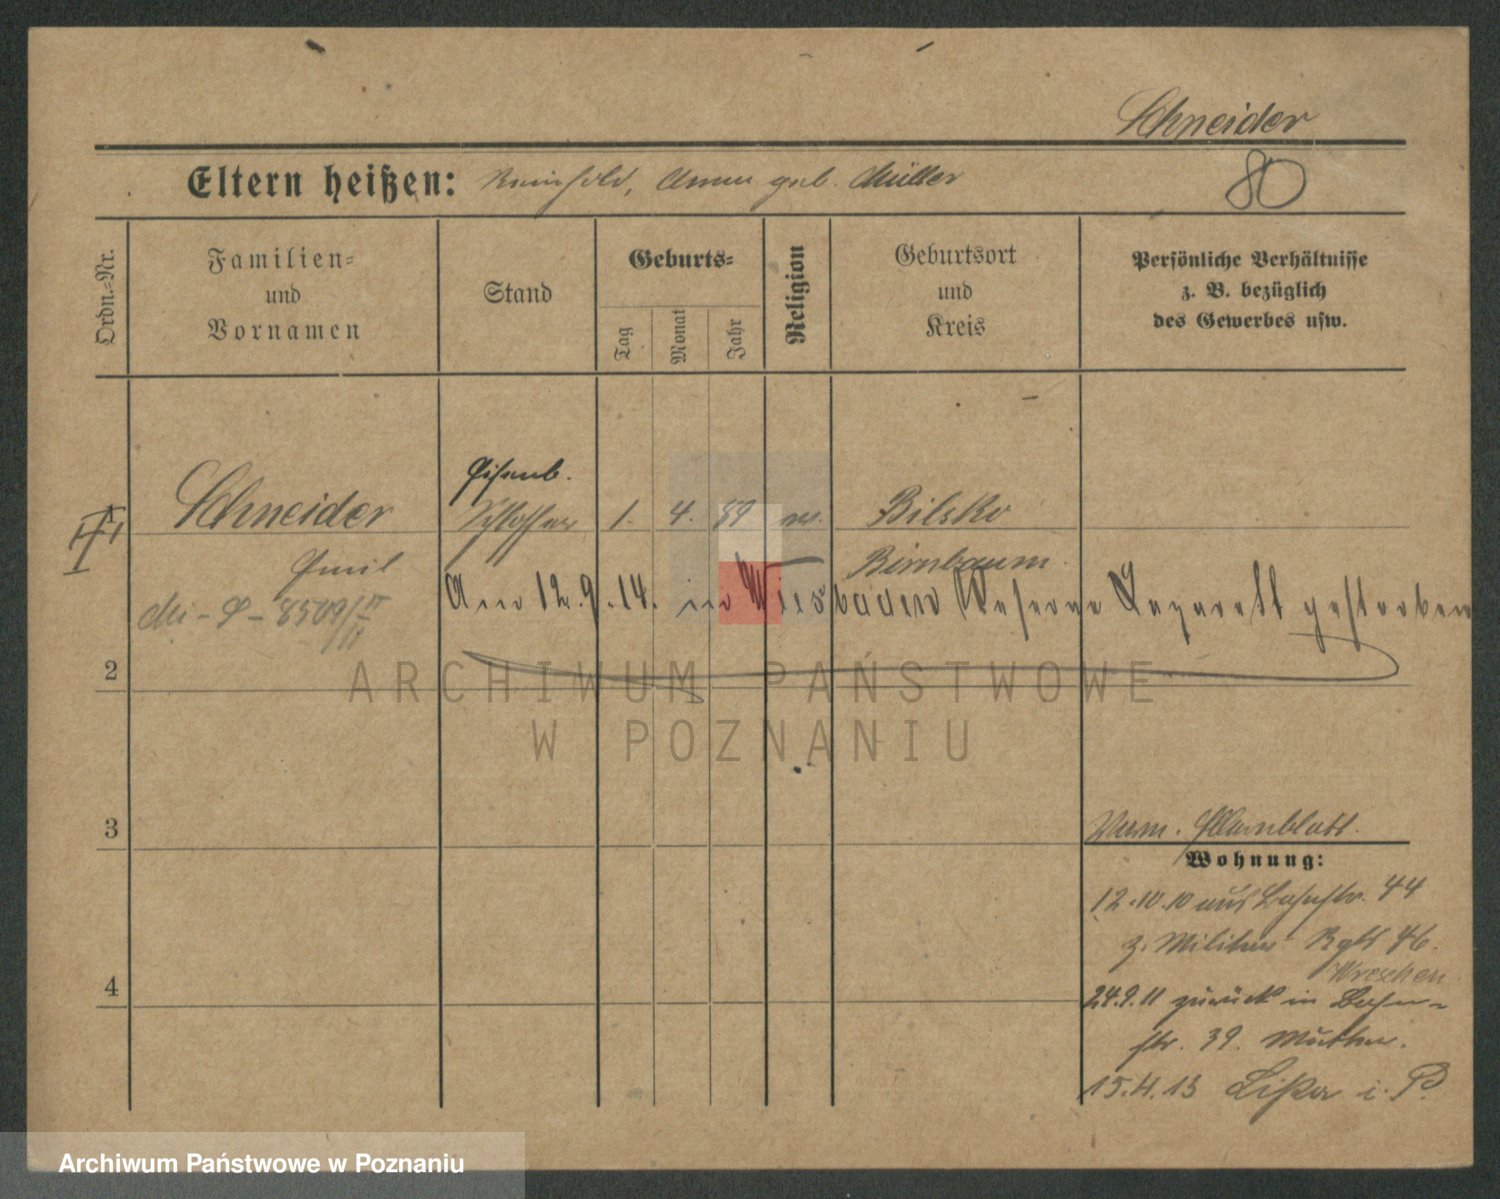 Schneider
Eltern heißen: Reinhold, Anna geb. Müller
80
Ordn.-Nr.
Familien-
und
Vornamen
Stand
Geburts-
Tag
Monat
Jahr
Religion
Geburtsort
und
Kreis
Persönliche Verhältnisse
z. B. bezüglich
des Gewerbes usw.
Eisenb.
1 Schneider Schlosser 1. 4. 89 ev. Bilsko
Emil Birnbaum.
Am 12.9.14. in Wiesbaden Reserve Lazarett gestorben
2
ARCHIWUM PAŃSTWOWE
W POZNANIU
3
Wohnung:
12.10.10 aus Bahnstr. 44
z. Militär Rgt 46.
Wreschen
4
24.9.11 zurück in Bahn-
str. 39. Mutter.
15.4.13 Lissa i. P.
Archiwum Państwowe w Poznaniu